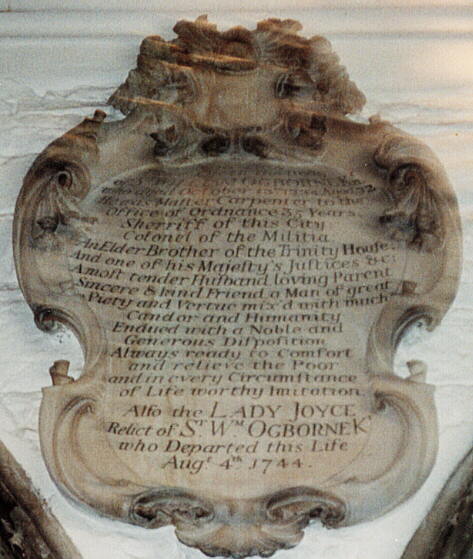 OGBORNE Kt
who died October 13th 1734 Aged 72
He was Master Carpenter to the
Office of Ordnance 35 Years.
Sherriff of this City
Colonel of the Militia
An Elder Brother of the Trinity House,
And one of his Majeſty's Juſtices &c:
A moſt tender Huſband loving Parent
Sincere & kind Friend a Man of great
Piety and Vertue mix'd with much
Candor and Humanity
Endued with a Noble and
Generous Diſpoſition
Always ready to Comfort
and relieve the Poor
and in every Circumſtance
of Life worthy Imitation
Alſo the LADY JOYCE
Relict of Sr. Wm OGBORNE Kt
who Departed this Life
Augt 4th 1744.